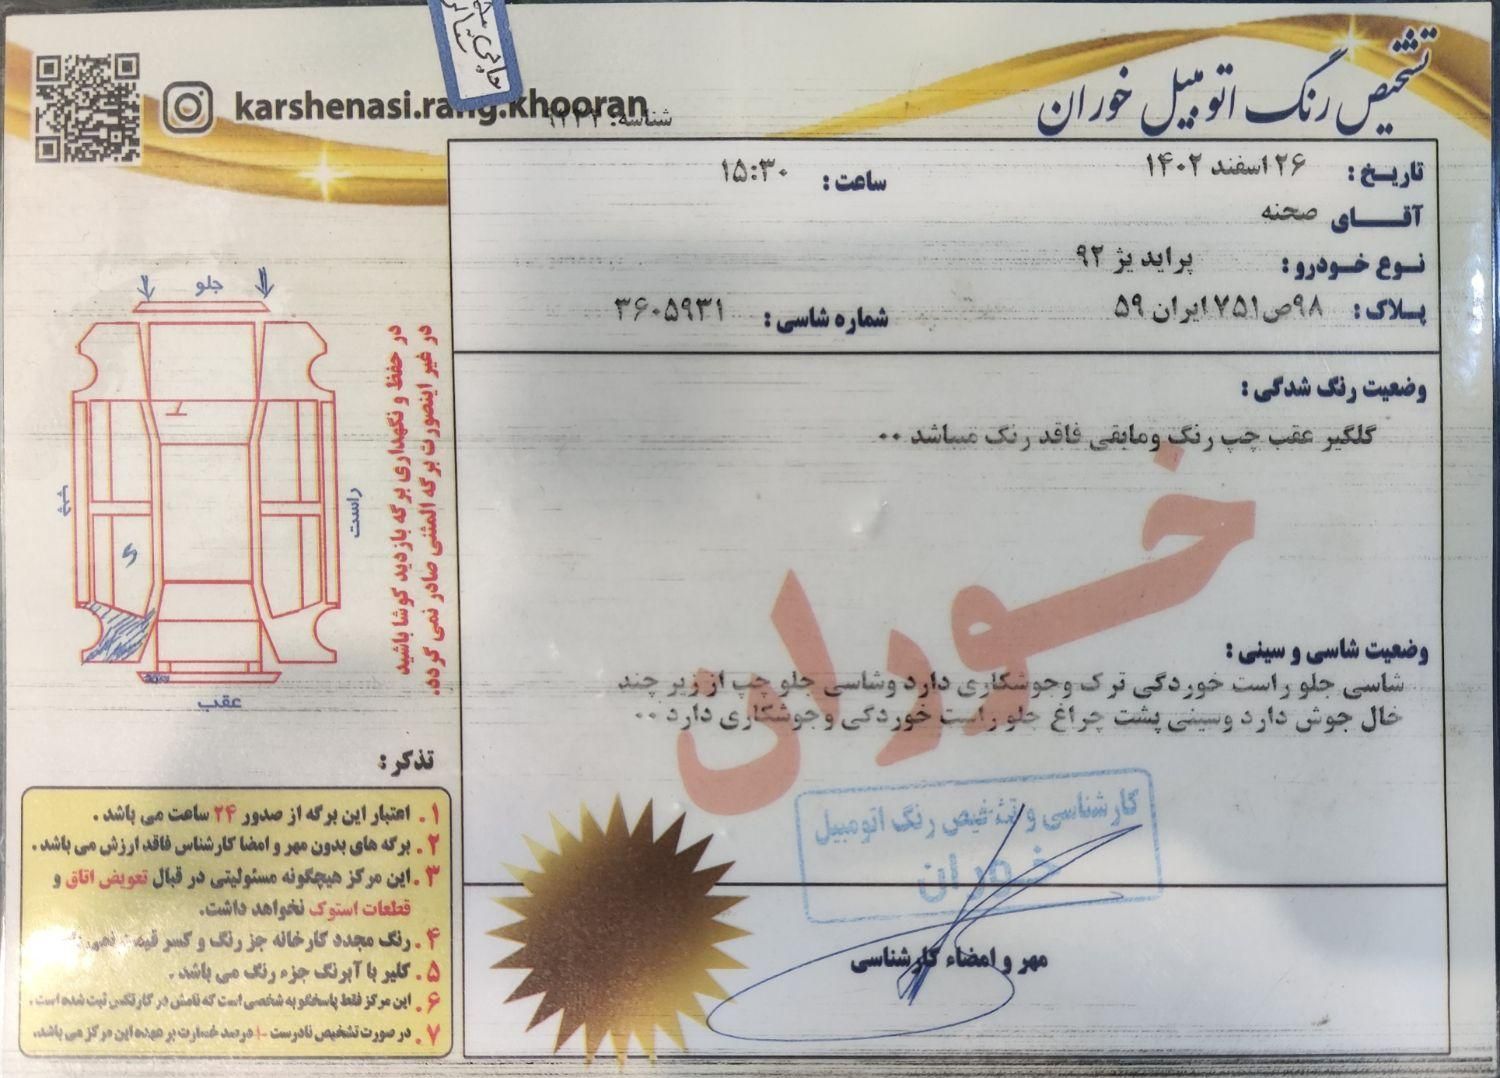 تشخیص رنگ اتومبیل خوران
karshenasi.rang.khooran
شناسه:
تاریخ: ۲۶ اسفند ۱۴۰۲ ساعت: ۱۵:۳۰
آقای صحنه
نوع خودرو: پراید یژ ۹۲
پلاک: ۹۸ص۷۵۱ ایران ۵۹ شماره شاسی: ۳۶۰۵۹۳۱
وضعیت رنگ شدگی:
گلگیر عقب چپ رنگ ومابقی فاقد رنگ میباشد ۰۰
خوران
وضعیت شاسی و سینی:
شاسی جلو راست خوردگی ترک وجوشکاری دارد وشاسی جلو چپ از زیر چند
خال جوش دارد وسینی پشت چراغ جلو راست خوردگی وجوشکاری دارد ۰۰
کارشناسی و تشخیص رنگ اتومبیل
خوران
مهر و امضاء کارشناسی
جلو
راست
عقب
در حفظ و نگهداری برگه بازدید کوشا باشید
در غیر اینصورت برگه المثنی صادر نمی گردد.
تذکر:
۱. اعتبار این برگه از صدور ۲۴ ساعت می باشد.
۲. برگه های بدون مهر و امضا کارشناس فاقد ارزش می باشد.
۳. این مرکز هیچگونه مسئولیتی در قبال تعویض اتاق و
قطعات استوک نخواهد داشت.
۴. رنگ مجدد کارخانه جز رنگ و کسر قیمت
۵. کلیر با آبرنگ جزء رنگ می باشد.
۶. این مرکز فقط پاسخگو به شخصی است که نامش در کارتکس ثبت شده است.
۷. در صورت تشخیص نادرست ۱۰ درصد خسارت بر عهده این مرکز می باشد.